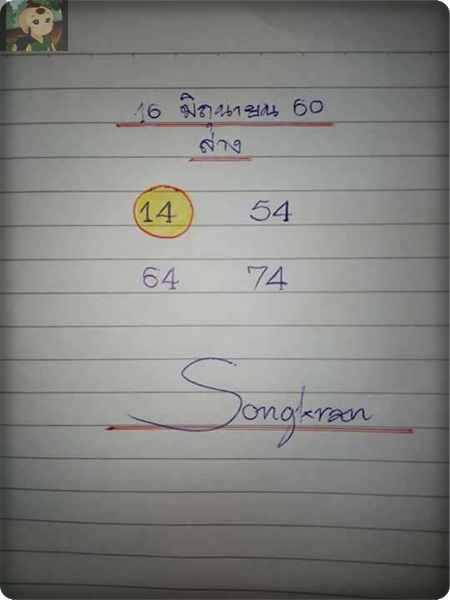 16 มิถุนายน 60
ล่าง
14 54
64 74
Songkran